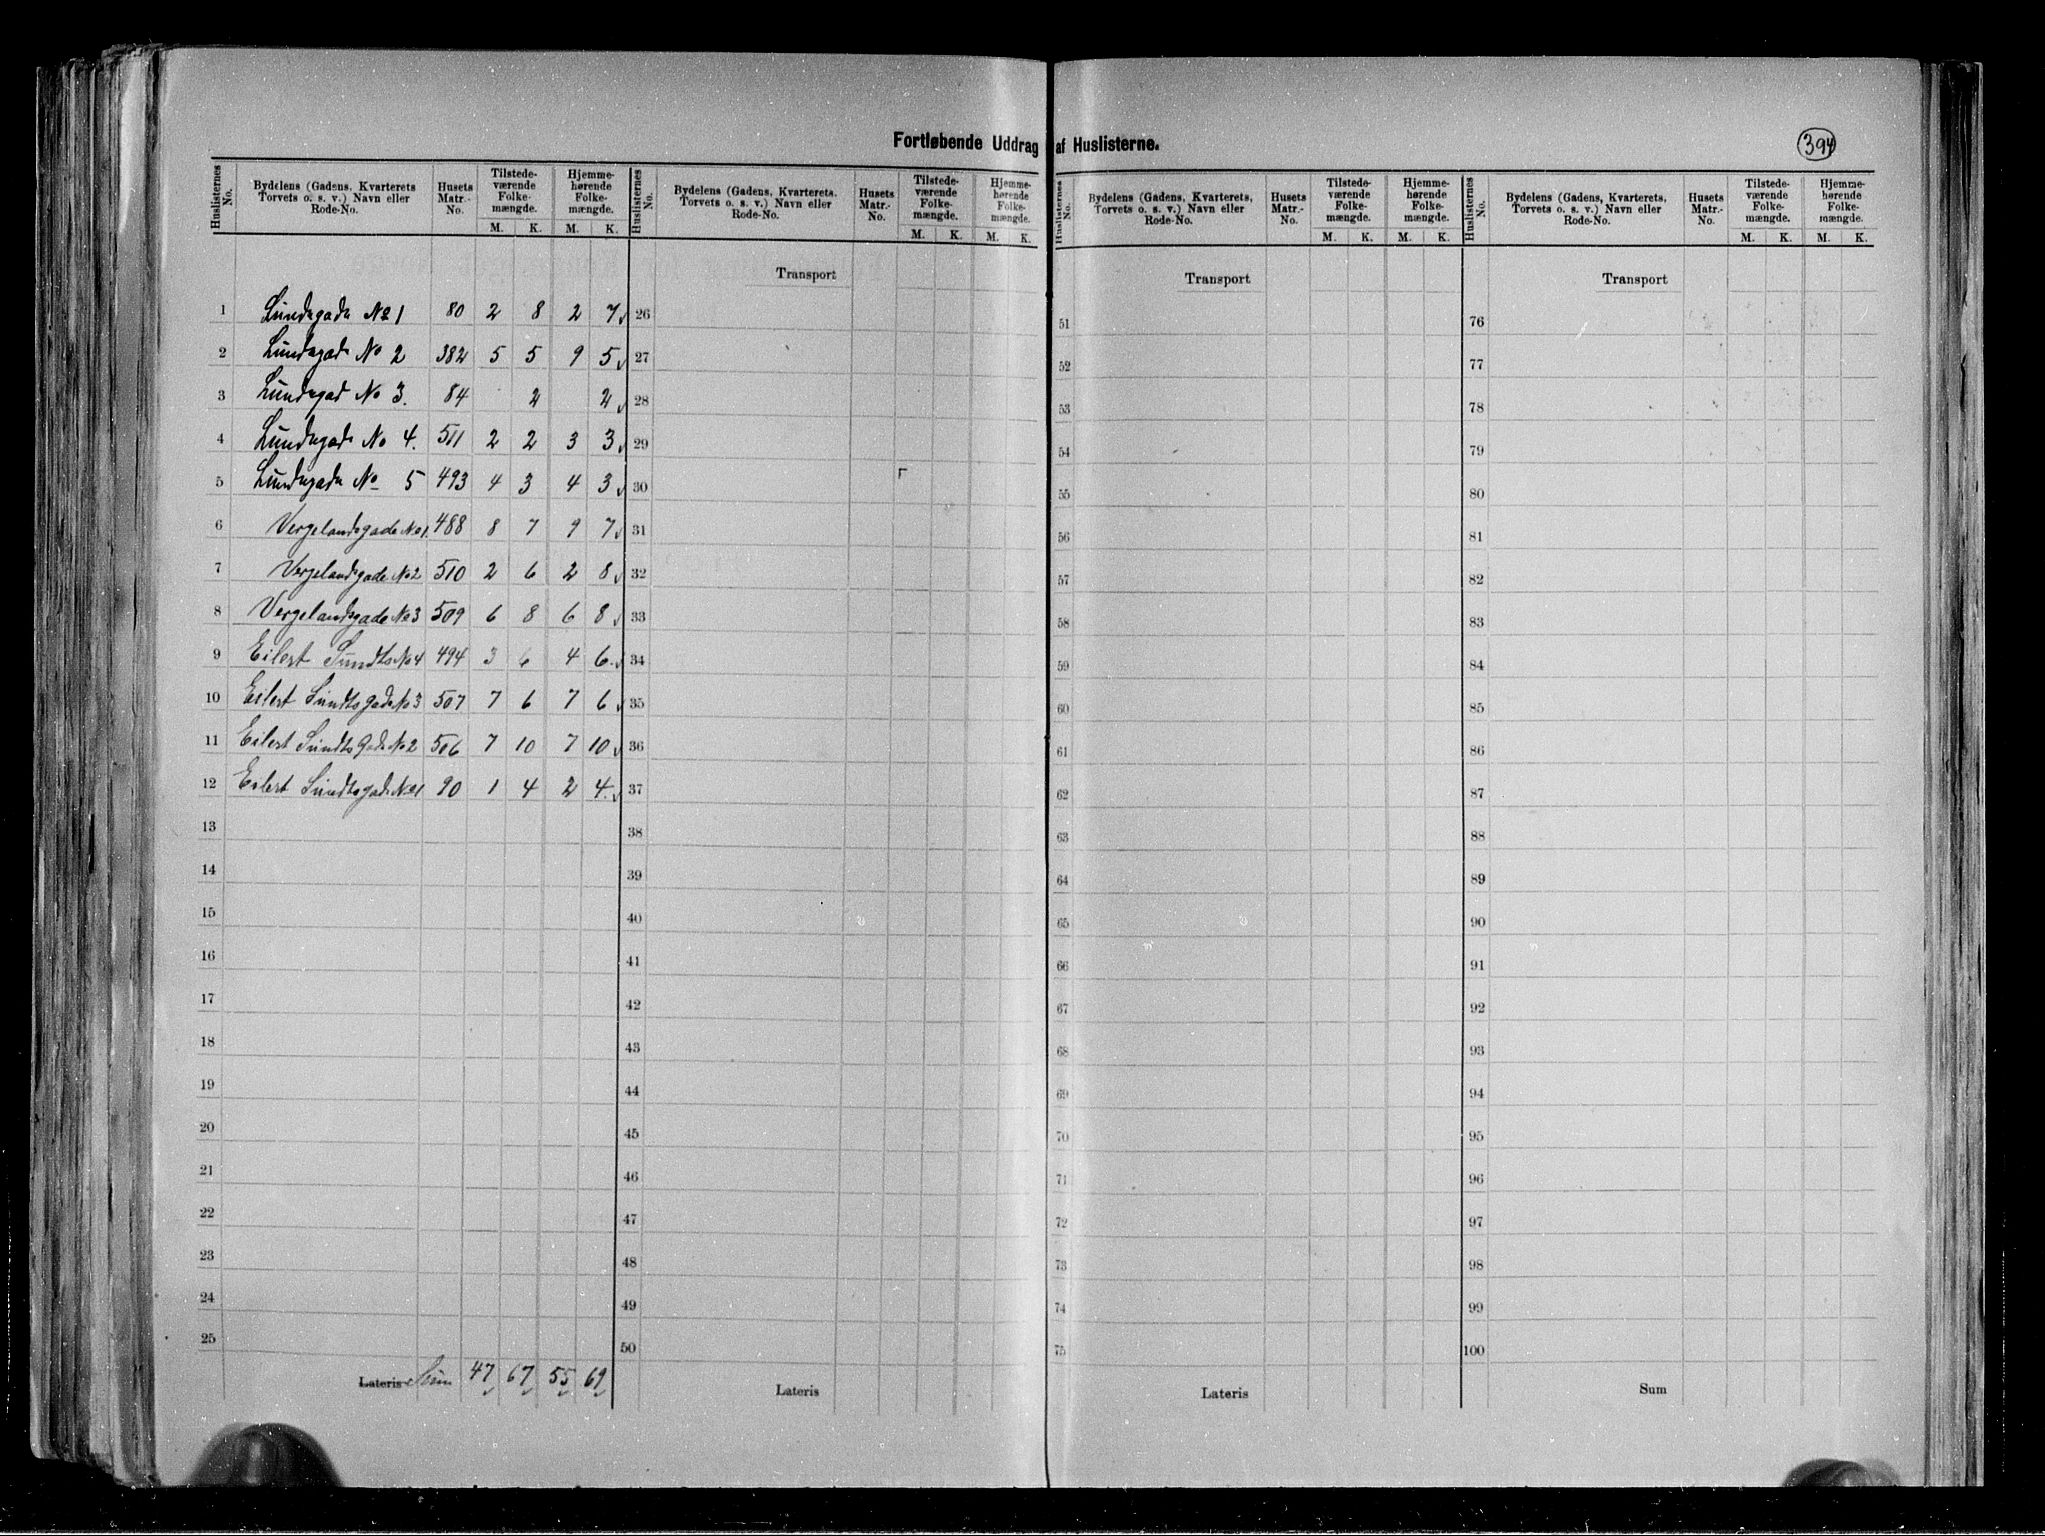 Fortløbende Uddrag af Huslisterne.
394
Huslisternes No. | Bydelens (Gadens, Kvarterets Torvets o. s. v.) Navn eller Rode-No. | Husets Matr.-No. | Tilstedeværende Folkemængde. M. K. | Hjemmehørende Folkemængde. M. K.
1 Lundegade No 1 80 2 8 2 7
2 Lundegade No 2 382 5 5 9 5
3 Lundegad No 3. 84 2 2
4 Lundegade No 4. 511 2 2 3 3
5 Lundegade No 5 493 4 3 4 3
6 Vergelandsgade No 1. 488 8 7 9 7
7 Vergelandsgade No 2 510 2 6 2 8
8 Vergelandsgade No 3 509 6 8 6 8
9 Eilert Sundts No 4 494 3 6 4 6
10 Eilert Sundts gade No 3 507 7 6 7 6
11 Eilert Sundts Gade No 2 506 7 10 7 10
12 Eilert Sundtsgade No 1 90 1 4 2 4
13
14
15
16
17
18
19
20
21
22
23
24
25
Lateris Sum 47 67 55 69
Huslisternes No. | Bydelens (Gadens, Kvarterets, Torvets o. s. v.) Navn eller Rode-No. | Husets Matr.-No. | Tilstedeværende Folkemængde. M. K. | Hjemmehørende Folkemængde. M. K.
Transport
26
27
28
29
30
31
32
33
34
35
36
37
38
39
40
41
42
43
44
45
46
47
48
49
50
Lateris
Huslisternes No. | Bydelens (Gadens, Kvarterets, Torvets o. s. v.) Navn eller Rode-No. | Husets Matr.-No. | Tilstedeværende Folkemængde. M. K. | Hjemmehørende Folkemængde. M. K.
Transport
51
52
53
54
55
56
57
58
59
60
61
62
63
64
65
66
67
68
69
70
71
72
73
74
75
Lateris
Huslisternes No. | Bydelens (Gadens, Kvarterets, Torvets o. s. v.) Navn eller Rode-No. | Husets Matr.-No. | Tilstedeværende Folkemængde. M. K. | Hjemmehørende Folkemængde. M. K.
Transport
76
77
78
79
80
81
82
83
84
85
86
87
88
89
90
91
92
93
94
95
96
97
98
99
100
Sum